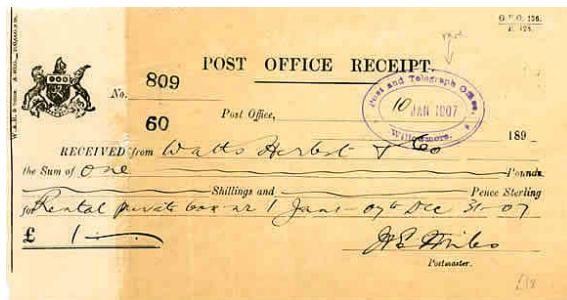 G.P.O. 136.
POST OFFICE RECEIPT.
No. 809
Post and Telegraph Office,
10 JAN 1907
Willowmore.
60 Post Office,
189
RECEIVED from Watts Herbst & Co
the Sum of One Pounds
Shillings and Pence Sterling
for Rental private box nr 1 Jan - 07 to Dec 31-07
£ 1
Postmaster.